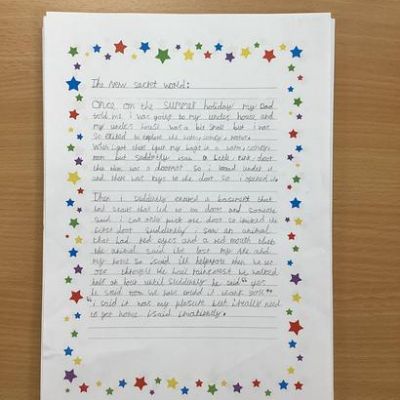 The new secret world:
Once on the summer holiday my Dad
told me I was going to my uncles house and
my uncles house was a bit small but I was
so excited to explore the
When I got there I put my bags in a
room but suddenly I saw a little tiny door
then there was a doormat so I looked under it
and there was keys to the door so I opened it.
Then I suddenly entered a basement that
had stairs that led to a door and someone
said I can only pick one door so I picked the
first door suddenly I saw an animal
that had red eyes and a red mouth then
the animal said Ive lost my
my home so I said Ill help you then we set
off through the rainforest we walked
half an hour until suddenly he said "yes"
he said now we have found it thank you"
"I said it was my pleasure but I really need
to get home I said